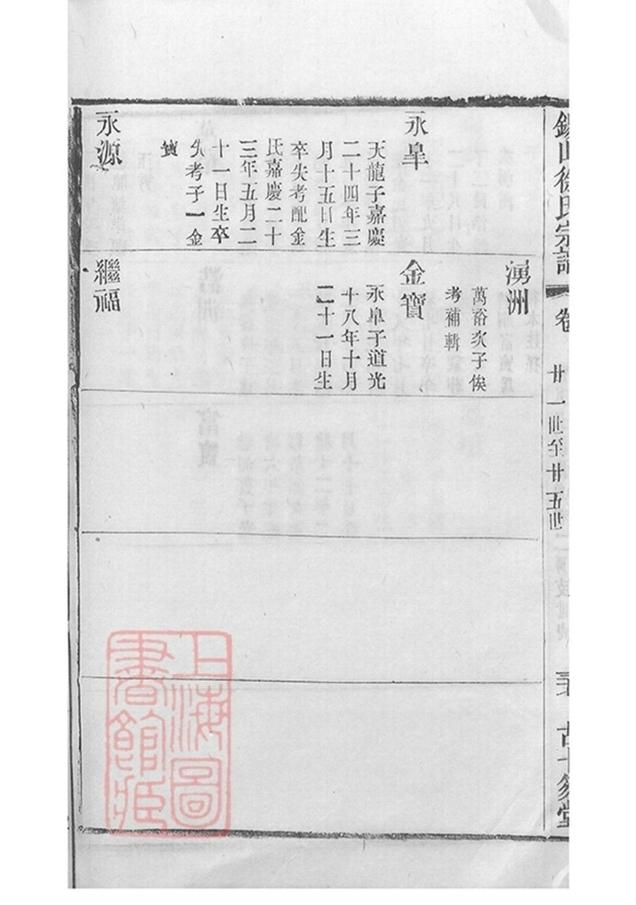 錫山徐氏宗譜
卷
廿一世至廿五世
湧洲
萬裕次子俟
考補輯
永臯
天龍子嘉慶
二十四年三
月十五日生
卒失考配金
氏嘉慶二十
三年五月二
十一日生卒
失考子一金
寶
金寶
永臯子道光
十八年十月
二十一日生
永源
繼福
上海圖
書館藏